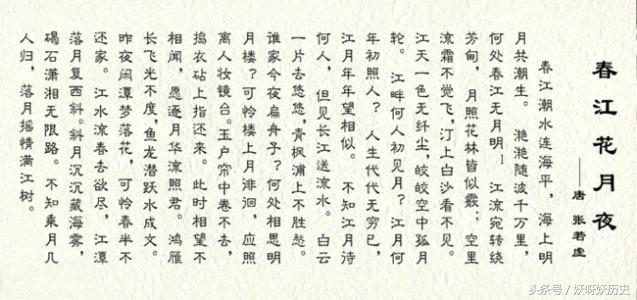 春江花月夜
——唐 张若虚
春江潮水连海平，海上明
月共潮生。滟滟随波千万里，
何处春江无月明！江流宛转绕
芳甸，月照花林皆似霰；空里
流霜不觉飞，汀上白沙看不见。
江天一色无纤尘，皎皎空中孤月
轮。江畔何人初见月？江月何
年初照人？人生代代无穷已，
江月年年望相似。不知江月待
何人，但见长江送流水。白云
一片去悠悠，青枫浦上不胜愁。
谁家今夜扁舟子？何处相思明
月楼？可怜楼上月徘徊，应照
离人妆镜台。玉户帘中卷不去，
捣衣砧上指还来。此时相望不
相闻，愿逐月华流照君。鸿雁
长飞光不度，鱼龙潜跃水成文。
昨夜闲潭梦落花，可怜春半不
还家。江水流春去欲尽，江潭
落月复西斜。斜月沉沉藏海雾，
碣石潇湘无限路。不知乘月几
人归，落月摇情满江树。
头条号／妖呀妖历史